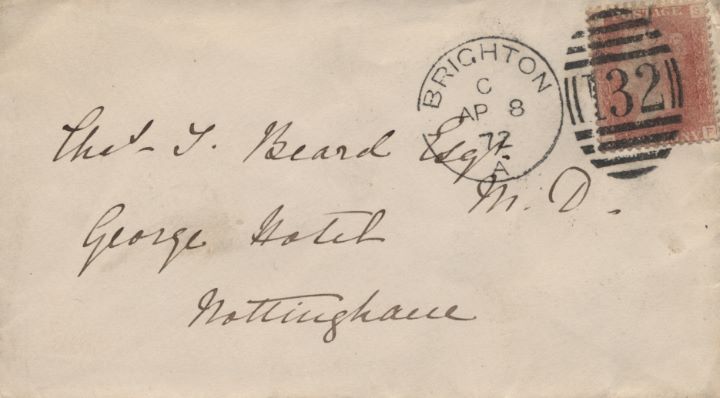 BRIGHTON
C
AP 8
72
A
132
POSTAGE
Chas. T. Beard Esqr.
M. D.
George Hotel
Nottingham